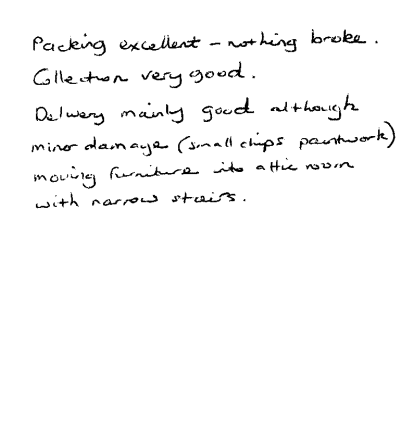 Packing excellent - nothing broke.
Collection very good.
Delivery mainly good although
minor damage (small chips paintwork)
moving furniture into attic room
with narrow stairs.